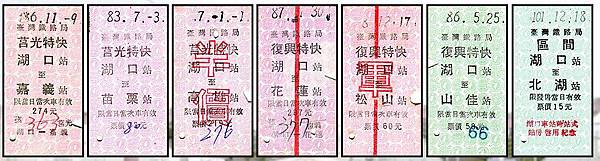 86.11.-9
臺灣鐵路局
莒光特快
湖口站
至
嘉義站
限當日當次車有效
274元
365
湖口—嘉義
83.7.-3.
臺灣鐵路局
莒光特快
湖口站
至
苗栗站
限當日當次車有效
票價
.7.-1.-1
臺灣鐵路局
湖口站
至
高雄站
半價
限當日當次車有效
376
87.
30.
臺灣鐵路局
復興特快
湖口站
至
花蓮站
限當日當次車有效
臺灣鐵路局
復興特快
湖口站
至
松山站
限當日當次車有效
票價60元
86.5.25.
臺灣鐵路局
復興特快
湖口站
至
山佳站
限當日當次車有效
票價
66
101.12.18
臺灣鐵路局
區間
湖口站
至
北湖站
限發售當日有效
票價15元
湖口車站跨站式
站房啓用紀念